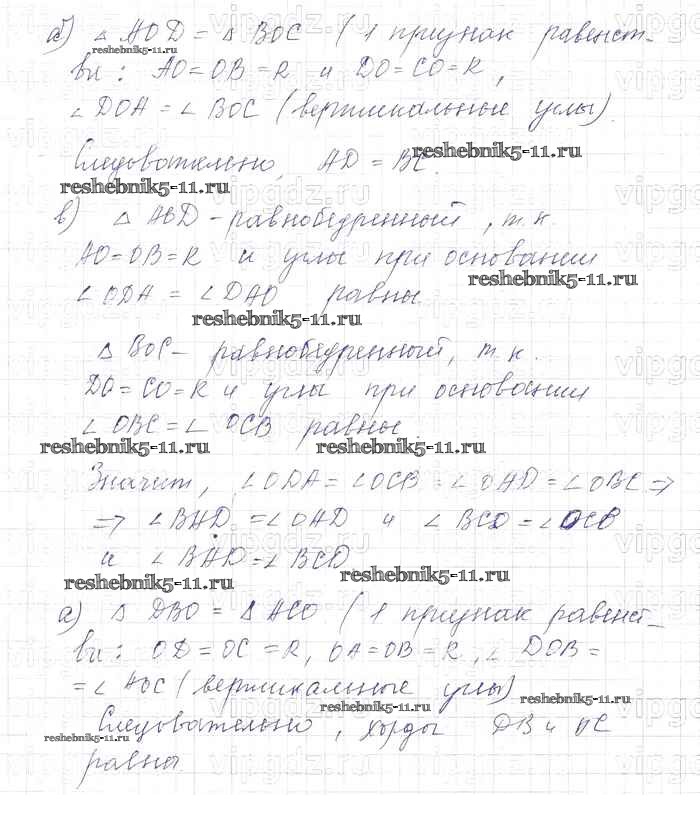 б) △ AOD = △ BOC (1 признак равенст-
reshebnik5-11.ru
ва: AO=OB=R и DO=CO=R,
∠DOA = ∠BOC (вертикальные углы).
Следовательно, AD = BC.
reshebnik5-11.ru
reshebnik5-11.ru
в) △ AOD - равнобедренный, т.к.
AO=OB=R и углы при основании
reshebnik5-11.ru
∠ODA = ∠DAO равны
reshebnik5-11.ru
△ BOC - равнобедренный, т.к.
DO=CO=R и углы при основании
∠OBC = ∠OCB равны.
reshebnik5-11.ru reshebnik5-11.ru
Значит, ∠ODA = ∠OCB = ∠OAD = ∠OBC ⇒
⇒ ∠BAD = ∠OAD и ∠BCD = ∠OCB
и ∠BAD = ∠BCD
reshebnik5-11.ru reshebnik5-11.ru
а) △ DBO = △ ACO (1 признак равенст-
ва: OD = OC = R, OA=OB=R, ∠DOB =
= ∠AOC (вертикальные углы)
reshebnik5-11.ru reshebnik5-11.ru
Следовательно, хорды DB и
reshebnik5-11.ru
равны